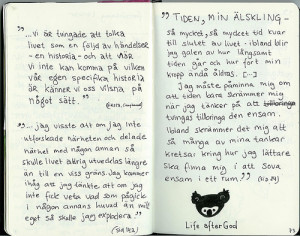 "...vi är tvingade att tolka
livet som en följd av händelser
– en historia – och att när
vi inte kan komma på vilken
vår egen specifika historia
är känner vi oss vilsna på
något sätt."
"...jag visste att om jag inte
utforskade närheten och delade
närhet med någon annan så
skulle livet aldrig utvecklas längre
än till en viss gräns. Jag kommer
ihåg att jag tänkte att om jag
inte fick veta vad som pågick
i någon annans huvud än mitt
eget så skulle jag explodera."
(sid 142)
"TIDEN, MIN ÄLSKLING –
så mycket, så mycket tid kvar
till slutet av livet – ibland blir
jag galen av hur långsamt
tiden går och hur fort min
kropp ändå åldras. (...)
Jag måste påminna mig om
att tiden bara skrämmer mig
när jag tänker på att tillbringa
tvingas tillbringa den ensam.
Ibland skrämmer det mig att
så många av mina tankar
kretsar kring hur jag lättare
ska finna mig i att sova
ensam i ett rum."
Life after God